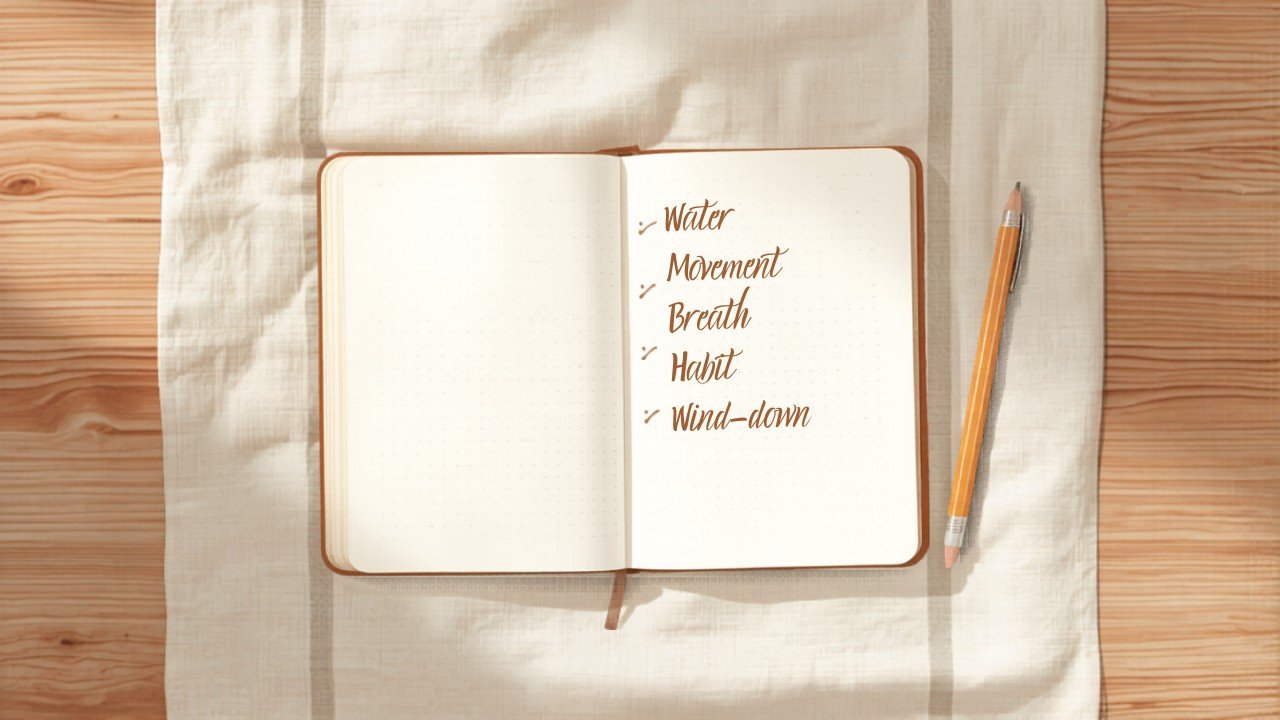 Water
Movement
Breath
Habit
Wind-down